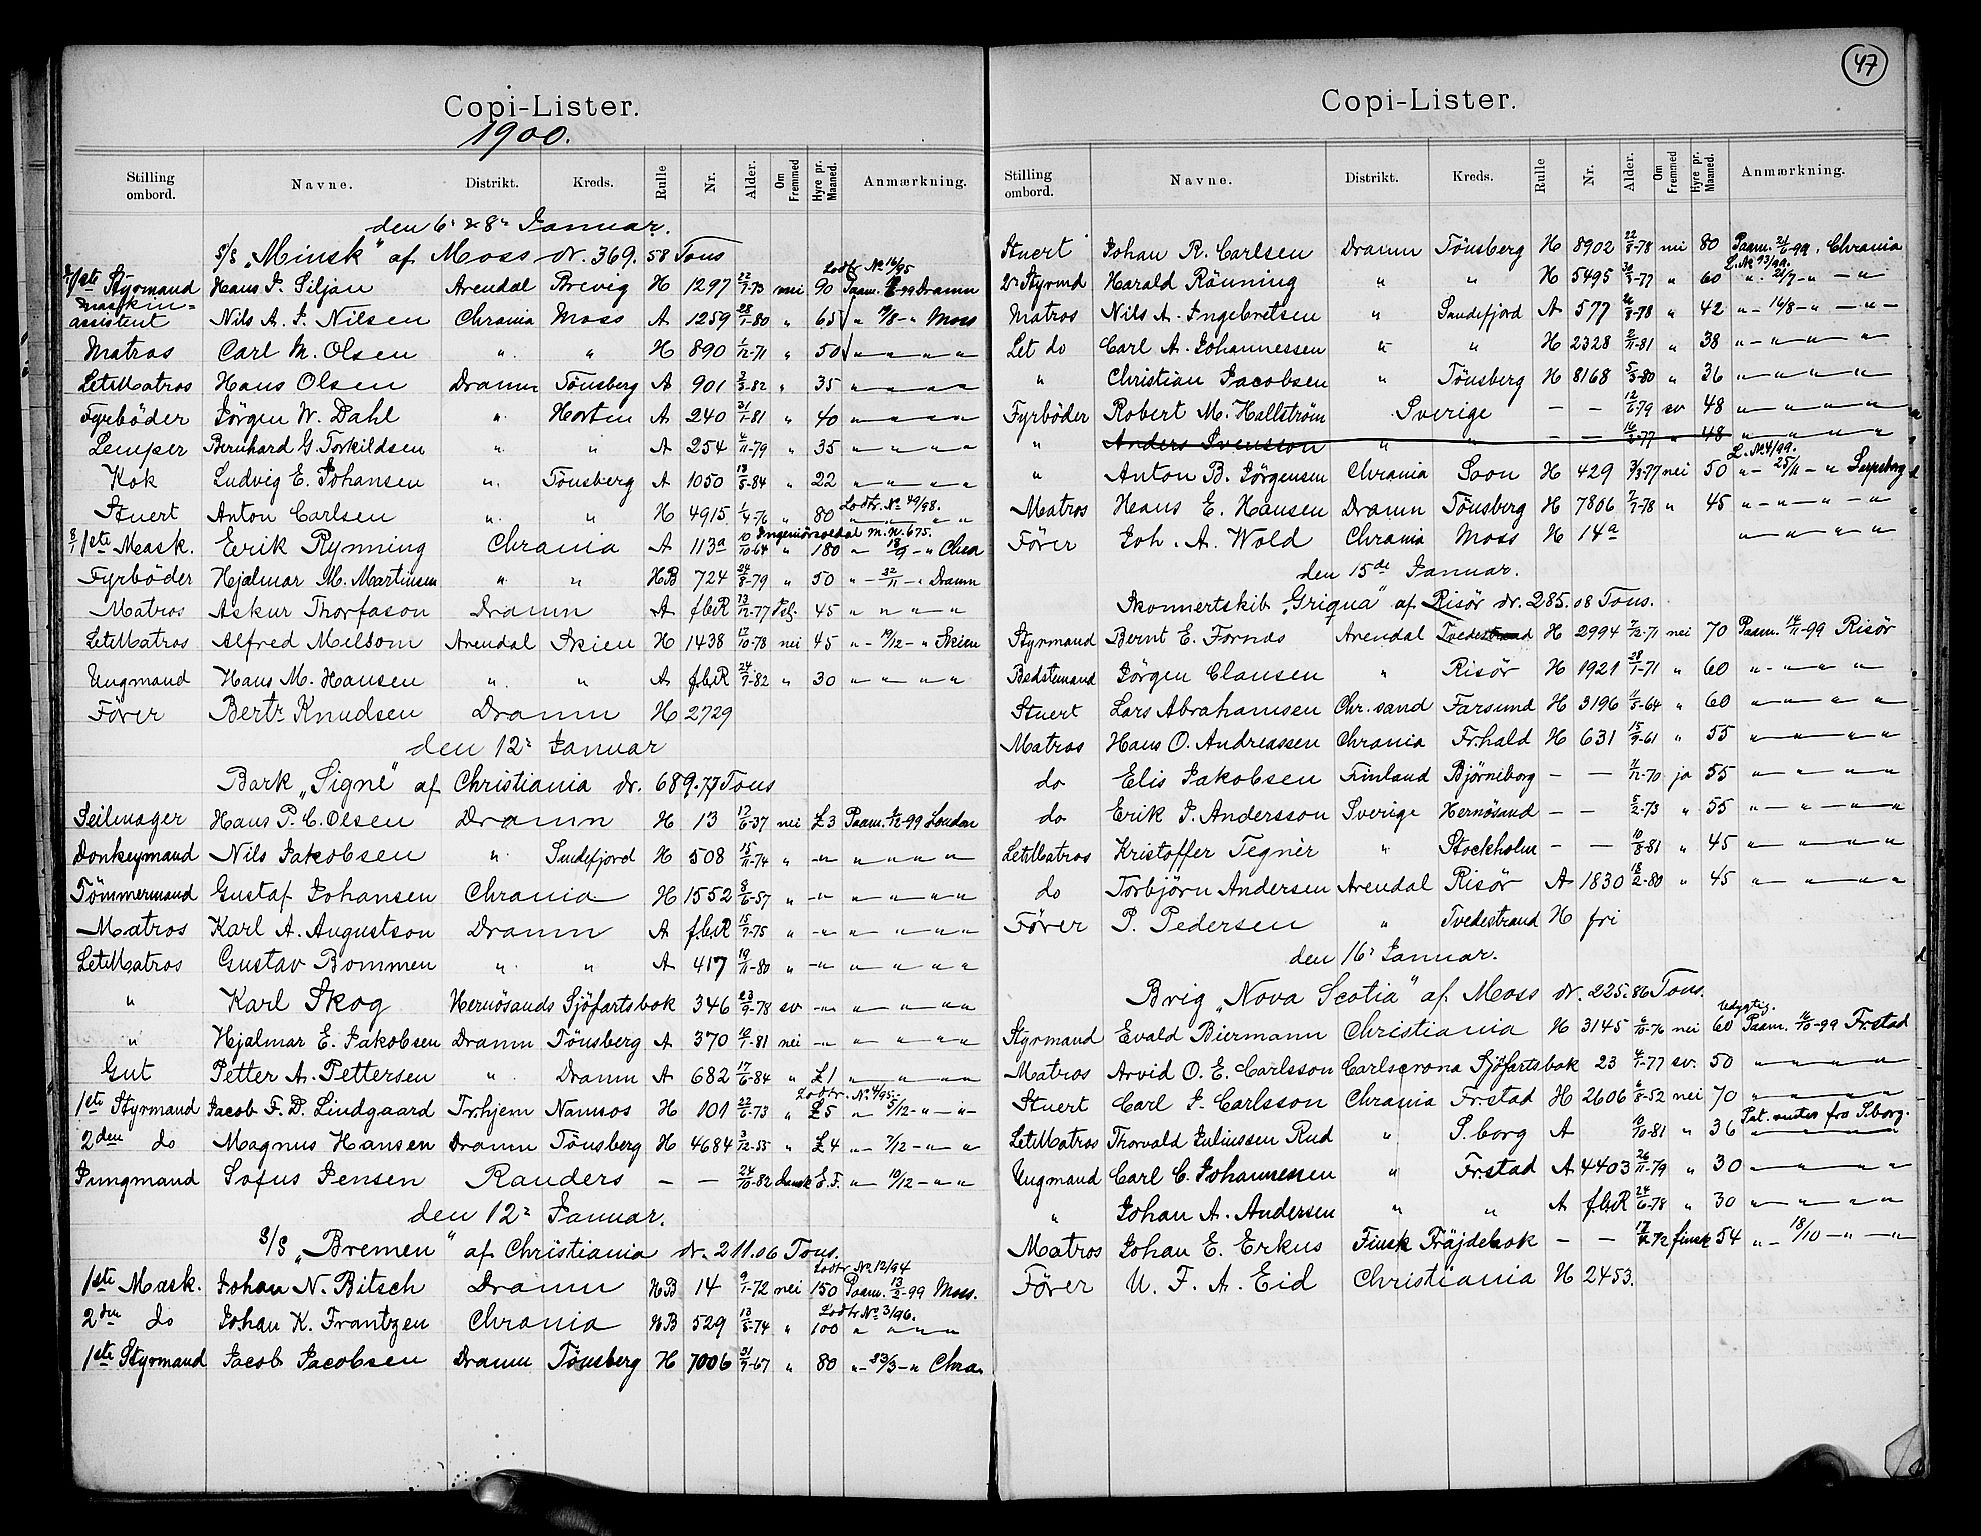 Copi-Lister.
1900.
Stilling ombord. Navne. Distrikt. Kreds. Rulle Nr. Alder. Om Fremmed Hyre pr. Maaned. Anmærkning.
den 6' & 8' Januar.
S/S „Minsk" af Moss dr. 369.58 Tons
Lodtr No 16/95
1ste Styrmand Hans J. Siljan Arendal Brevig H 1297 22/7-73 nei 90 Paam. -99 Dramn
Maskin-
assistent Nils A. J. Nilsen Chrania Moss A 1259 28/1-80 " 65 " 19/8-" Moss
Matros Carl M. Olsen " " H 890 1/12-71 " 50 " " " "
LetMatros Hans Olsen Dramn Tönsberg A 901 3/3-82 " 35 " " " "
Fyrböder Jörgen W. Dahl " Horten A 240 31/1-81 " 40 " " " "
Lemper Bernhard G. Torkildsen " " A 254 4/11-79 " 35 " " " "
Kok Ludvig E. Johansen " Tönsberg A 1050 13/5-84 " 22 " " " "
Lodtr. No 49/98.
Stuert Anton Carlsen " " H 4915 1/4-76 " 80 " " " "
Ingeniörsoldal m. n. 675.
8/1 1ste Mask. Erik Rynning Chrania A 113a 10/10-64 " 180 " 13/9 " Chra
Fyrböder Hjalmar M. Martinsen " " HB 724 24/8-79 " 50 " 22/11 " Dramn
Matros Askur Thorfason Dramn A f.b.R 13/12-77 Isl. 45 " " " "
LetMatros Alfred Meldom Arendal Skien H 1438 17/10-78 nei 45 " 19/12 " Skien
Ungmand Hans M. Hansen " " A f.b.R 24/7-82 " 30 " " " "
Förer Bertr Knudsen Dramn H 2729
den 12' Januar
Bark „Signe" af Christiania dr. 689.77 Tons
Seilmager Hans P. C. Olsen Dramn H 13 17/6-37 nei £3 Paam. 1/12-99 London
Donkeymand Nils Jakobsen " Sandefjord H 508 15/11-74 " " " " " "
Tömmermand Gustaf Johansen Chrania H 1552 8/6-57 " " " " " "
Matros Karl A. Augustson Dramn A f.b.R 15/7-75 " " " " " "
LetMatros Gustav Bommen " " A 417 19/11-80 " " " " " "
" Karl Skog Hernösands Sjöfartsbok 346 23/9-78 sv " " " " "
" Hjalmar E. Jakobsen Dramn Tönsberg A 370 10/1-81 nei " " " " "
Gut Petter A. Pettersen " Dramn A 682 17/6-84 " £1 " " " "
Lodtr. No 4/95.
1ste Styrmand Jacob F. P. Lindgaard Tr.hjem Namsos H 101 22/6-73 " £5 " 5/12 " "
2den do Magnus Hansen Dramn Tönsberg H 4684 3/12-55 " £4 " 7/12 " "
Jungmand Sofus Jensen Randers — — 24/10-82 dansk E.F. " 19/12 " "
den 12' Januar.
S/S „Bremen" af Christiania dr. 211.06 Tons.
Lodtr No 12/94
1ste Mask. Johan N. Bitsch Dramn HB 14 9/1-72 nei 150 Paam. 13/2-99 Moss.
Lodtr No 3/96.
2den do Johan K. Frantzen Chrania HB 529 13/8-74 " 100 " " " "
1ste Styrmand Jacob Jacobsen Dramn Tönsberg H 7006 31/7-67 " 80 " 23/3 " Chra.
47
Copi-Lister.
Stilling ombord. Navne. Distrikt. Kreds. Rulle Nr. Alder. Om Fremmed Hyre pr. Maaned. Anmærkning.
Stuert Johan R. Carlsen Dramn Tönsberg H 8902 22/8-78 nei 80 Paam. 21/6-99. Chrania
L. No 93/99.
2' Styrmd Harald Rönning " " H 5495 30/3-77 " 60 " 21/7 " "
Matros Nils A. Ingebretsen " Sandefjord A 577 26/8-78 " 42 " 16/8 " "
Let do Carl A. Johannessen " " H 2328 2/11-81 " 38 " " " "
" Christian Jacobsen " Tönsberg H 8168 5/3-80 " 36 " " " "
Fyrböder Robert M. Hallström Sverige — — 12/6-79 sv 48 " " " "
" Anders Svensson " " — — 16/3-77 " 48 " " " "
L. No 4/99.
" Anton B. Jörgensen Chrania Soon H 429 3/9-77 nei 50 " 25/11 " Sarpsborg
Matros Hans E. Hansen Dramn Tönsberg H 7806 7/7-78 " 45 " " " "
Förer Joh. A. Wold Chrania Moss H 14a " " " "
den 15de Januar.
Skonnertskib „Griqua" af Risör dr. 285.08 Tons.
Styrmand Bernt E. Fornds Arendal Tvedestrand H 2994 7/12-71 nei 70 Paam. 14/11-99 Risör
Bedstemand Jörgen Clausen " Risör H 1921 28/1-71 " 60 " " " "
Stuert Lars Abrahamsen Chr.sand Farsund H 3196 11/5-64 " 60 " " " "
Matros Hans O. Andreassen Chrania Fr.hald H 631 15/9-61 " 55 " " " "
do Elis Jakobsen Finland Björneborg — — 11/12-70 ja 55 " " " "
do Erik J. Andersson Sverige Hernösand — — 5/2-73 " 55 " " " "
LetMatros Kristoffer Tegnér " Stockholm — — 10/8-81 " 45 " " " "
do Torbjörn Andersen Arendal Risör A 1830 18/2-80 " 45 " " " "
Förer P. Pedersen " Tvedestrand H fri
den 16' Januar.
Brig „Nova Scotia" af Moss dr. 225.86 Tons.
Udygtig.
Styrmand Evald Biermann Christiania H 3145 6/10-76 nei 60 Paam. 16/10-99 Fr.stad
Matros Arvid O. E. Carlsson Carlscrona Sjöfartsbok 23 4/7-77 sv. 50 " " " "
Stuert Carl J. Carlsson Chrania Fr.stad H 2606 6/8-52 nei 70 " " " "
Pat. mster fra S.borg.
LetMatros Thorvald Juliussen Rud " S.borg A 10/10-81 " 36 " " " "
Ungmand Carl C. Johannesen " Fr.stad A 4403 26/11-79 " 30 " " " "
" Johan A. Andersen " " A f.b.R 24/6-78 " 30 " " " "
Matros Johan E. Erkus Finsk Fräjdebok — — 17/4-72 finsk 54 " 18/10 " "
Förer U. F. A. Eid Christiania H 2453.